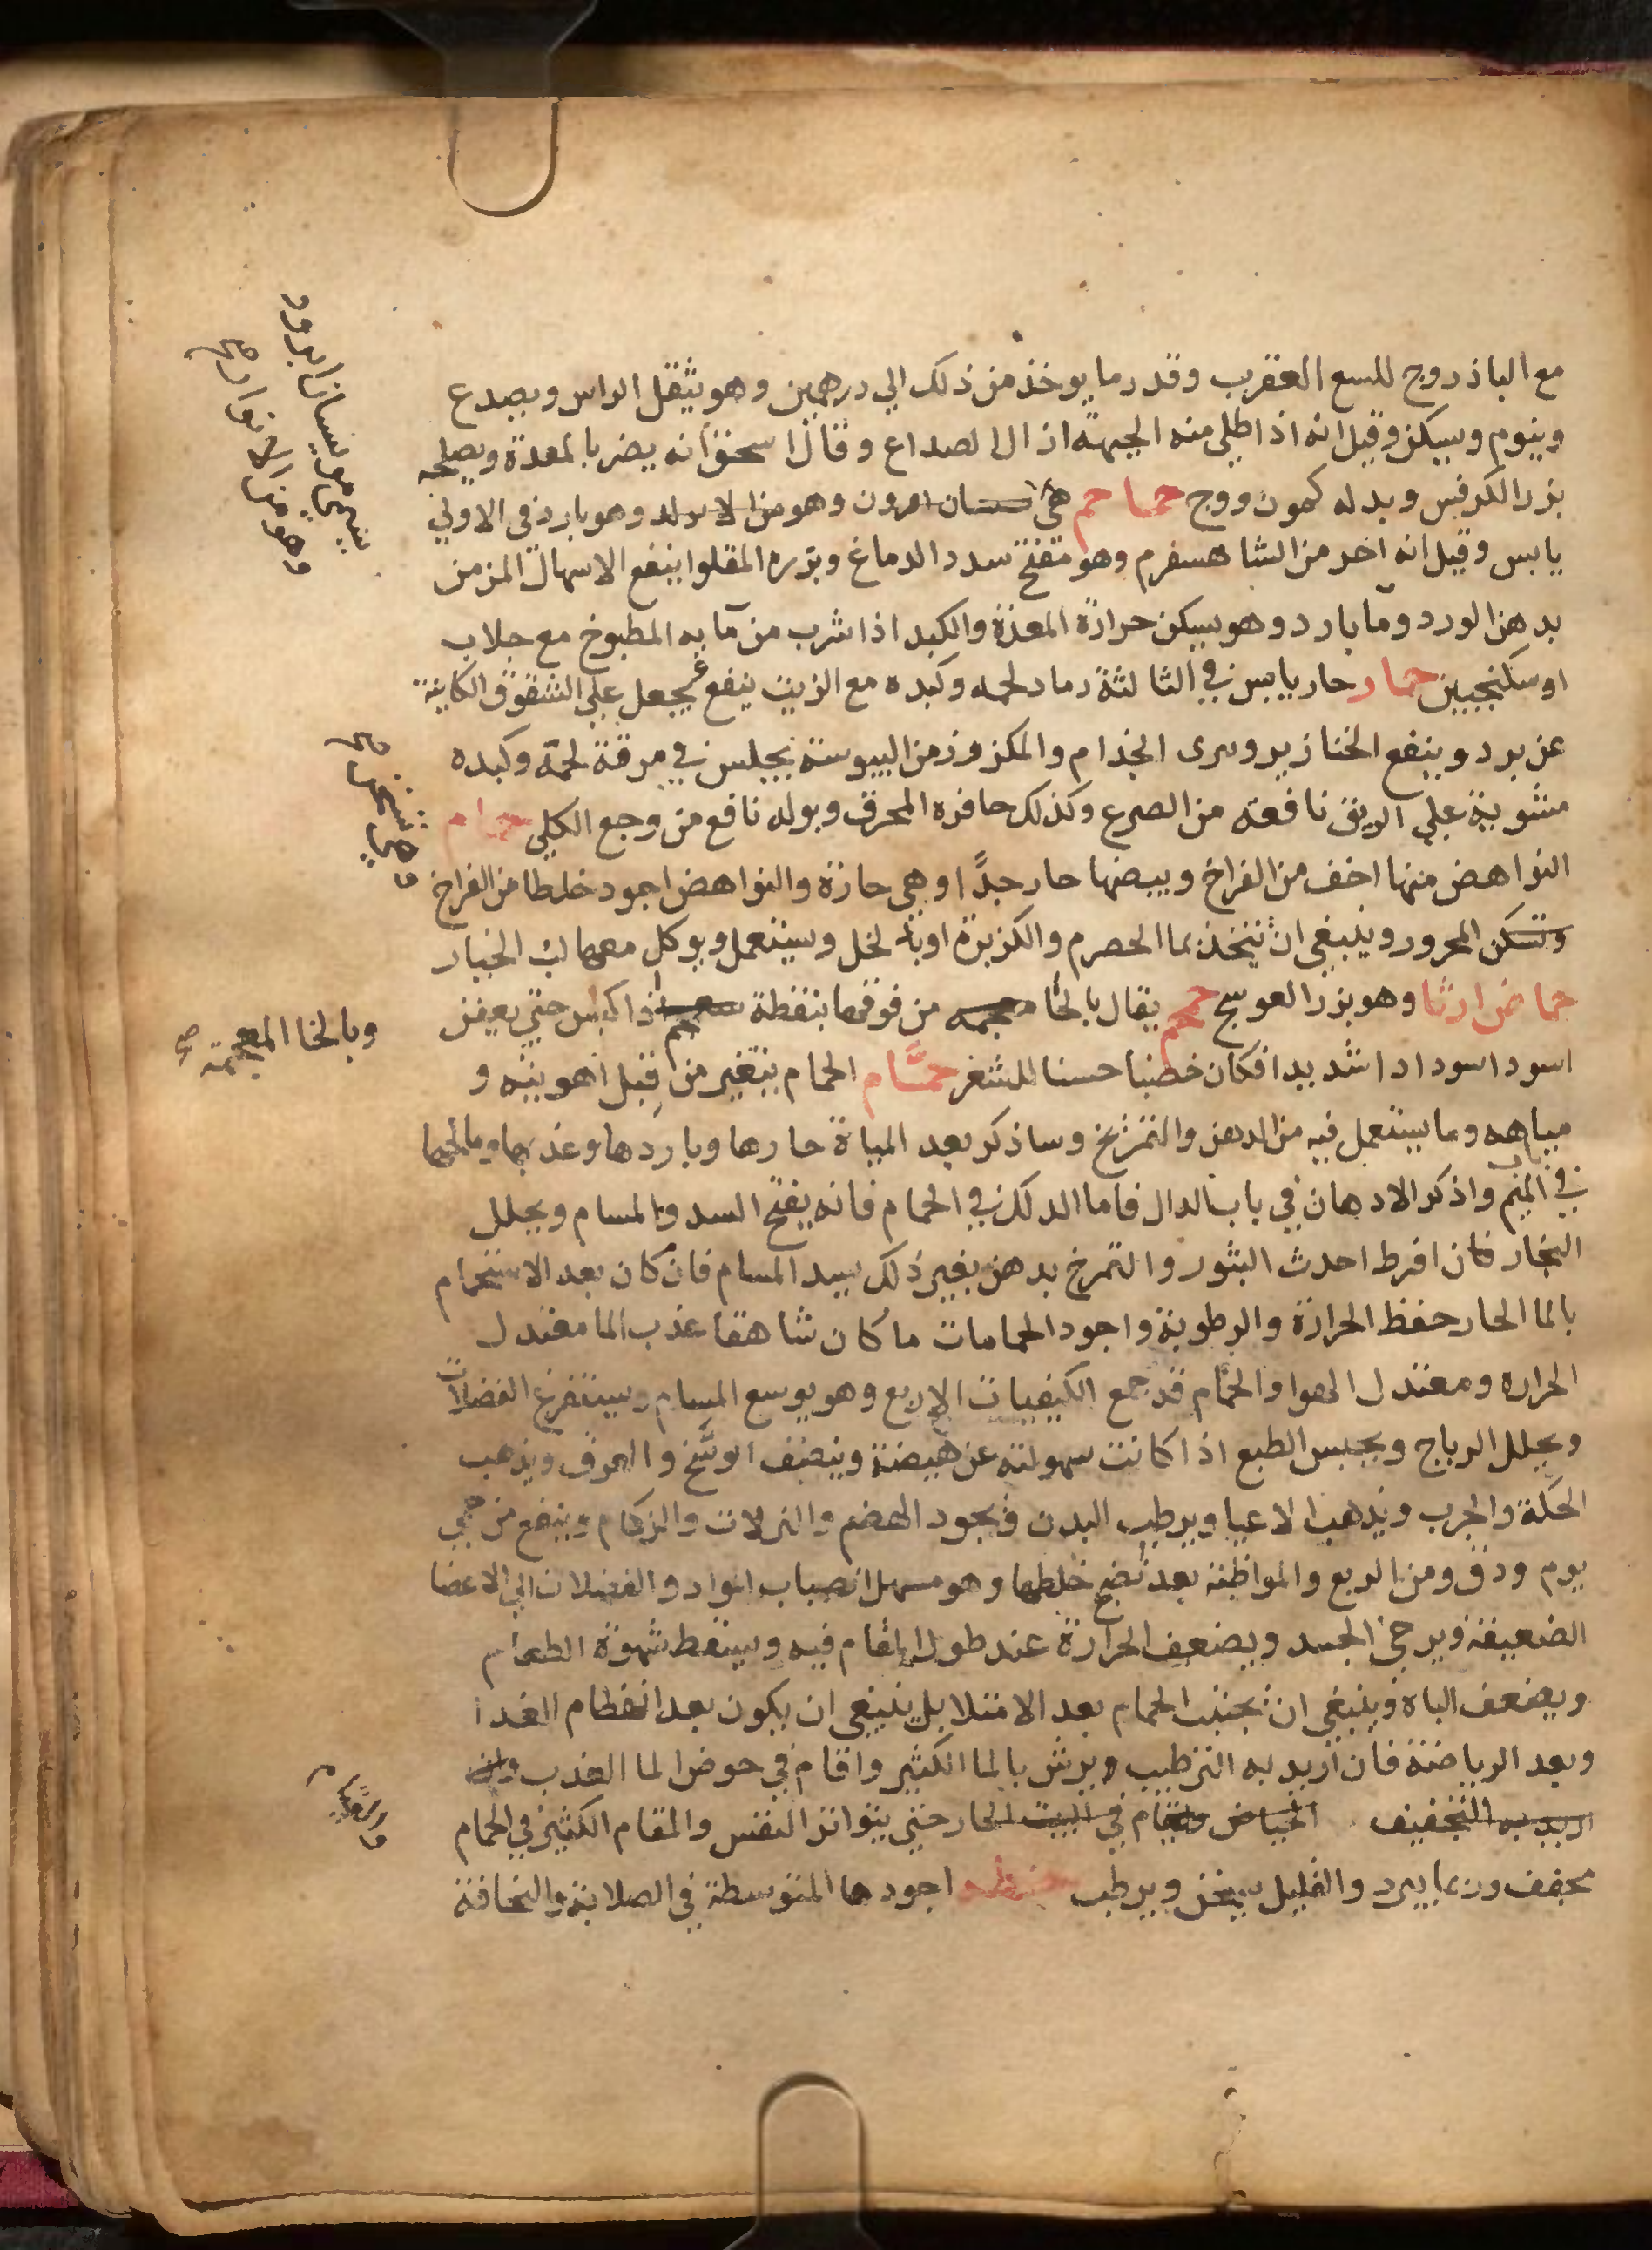 مع الباذروج للسع العقرب وقدر ما يوخذ من ذلك الي درهمين وهو يثقل الراس ويصدع
وينوم ويسكن وقيل انه اذا طلي منه الجبهة ازال الصداع وقال اسحق انه يضر بالمعدة ويصلحه
بزر الكرفس وبدله كمون ووج حماحم هي وهو من وهو بارد في الاولي
يابس وقيل انه احر من الشاهسفرم وهو مفتح سدد الدماغ وبزره المقلوا ينفع الاسهال المزمن
بدهن الورد وما بارد وهو يسكن حرارة المعدة والكبد اذا شرب من مايه المطبوخ مع جلاب
او سكنجبين حمار حار يابس في الثالثة رماد لحمه وكبده مع الزيت ينفع يجعل علي الشقوق الكاينة
عن برد وينفع الخنازير ويبرى الجذام والمكزوز من اليبوسة يجلس في مرقة لحمه وكبده
مشوية علي الريق نافعة من الصرع وكذلك حافره المحرق وبوله نافع من وجع الكلي حمام
النواهض منها اخف من الفراخ وبيضها حار جدًّا وهي حارة والنواهض اجود خلطا من الفراخ
المحرور وينبغي ان يتخذ بما الحصرم والكزبرة او بالخل ويستعمل ويوكل معها لب الخيار
حماض ارنا وهو بزر العوسج حمحم يقال بالخا معجمه من فوقها بنقطة اذا كبس حتي يعفن
اسود اسودادا شديدا فكان خضبا حسنا للشعر حمَّام الحمام يتغير من قبل اهويته و
مياهه وما يستعمل فيه من الدهن والتمزيخ وساذكر بعد المياة حارها وباردها وعذبها ومالحها
في باب الميم واذكر الادهان في باب الدال فاما الدلك في الحمام فانه يفتح السدد والمسام ويحلل
البخار فان افرط احدث البثور والتمرخ بدهن بغير ذلك يسد المسام فان كان بعد الاستحمام
بالما الحار حفظ الحرارة والرطوبة واجود الحمامات ما كان شاهقا عذب الما معتدل
الحرارة ومعتدل الهوا والحمَّام قد جمع الكيفيات الاربع وهو يوسع المسام ويستفرغ الفضلات
ويحلل الرياح ويحبس الطبع اذا كانت سهولته عن هيضة وينضف الوسَّخ والعرق ويذهب
الحكَّة والجرب ويذهب الاعيا ويرطب البدن ويجود الهضم والنزلات والزكام وينفع من حمي
يوم ودق ومن الربع والمواظبة بعد نضج خلطها وهو مسهل انصباب المواد والفضلات الي الاعضا
الضعيفة ويرخي الجسد ويضعف الحرارة عند طول المقام فيه ويسقط شهوة الطعام
ويضعف الباه وينبغي ان يجتنب الحمام بعد الامتلا بل ينبغي ان يكون بعد انهظام الغدا
وبعد الرياضة فان اريد به الترطيب ويرش بالما الكثير واقام في حوض الما العذب وان
اريد به التخفيف الحياض واقام في البيت الحار حتي يتواتر النفس والمقام الكثير في الحمام
مجفف وربما يبرد والقليل يسخن ويرطب حنطه اجودها المتوسطة في الصلابة والنحافة
وهو من الانوار صح
وهي شحمها صح
وبالخا المعجمة صح